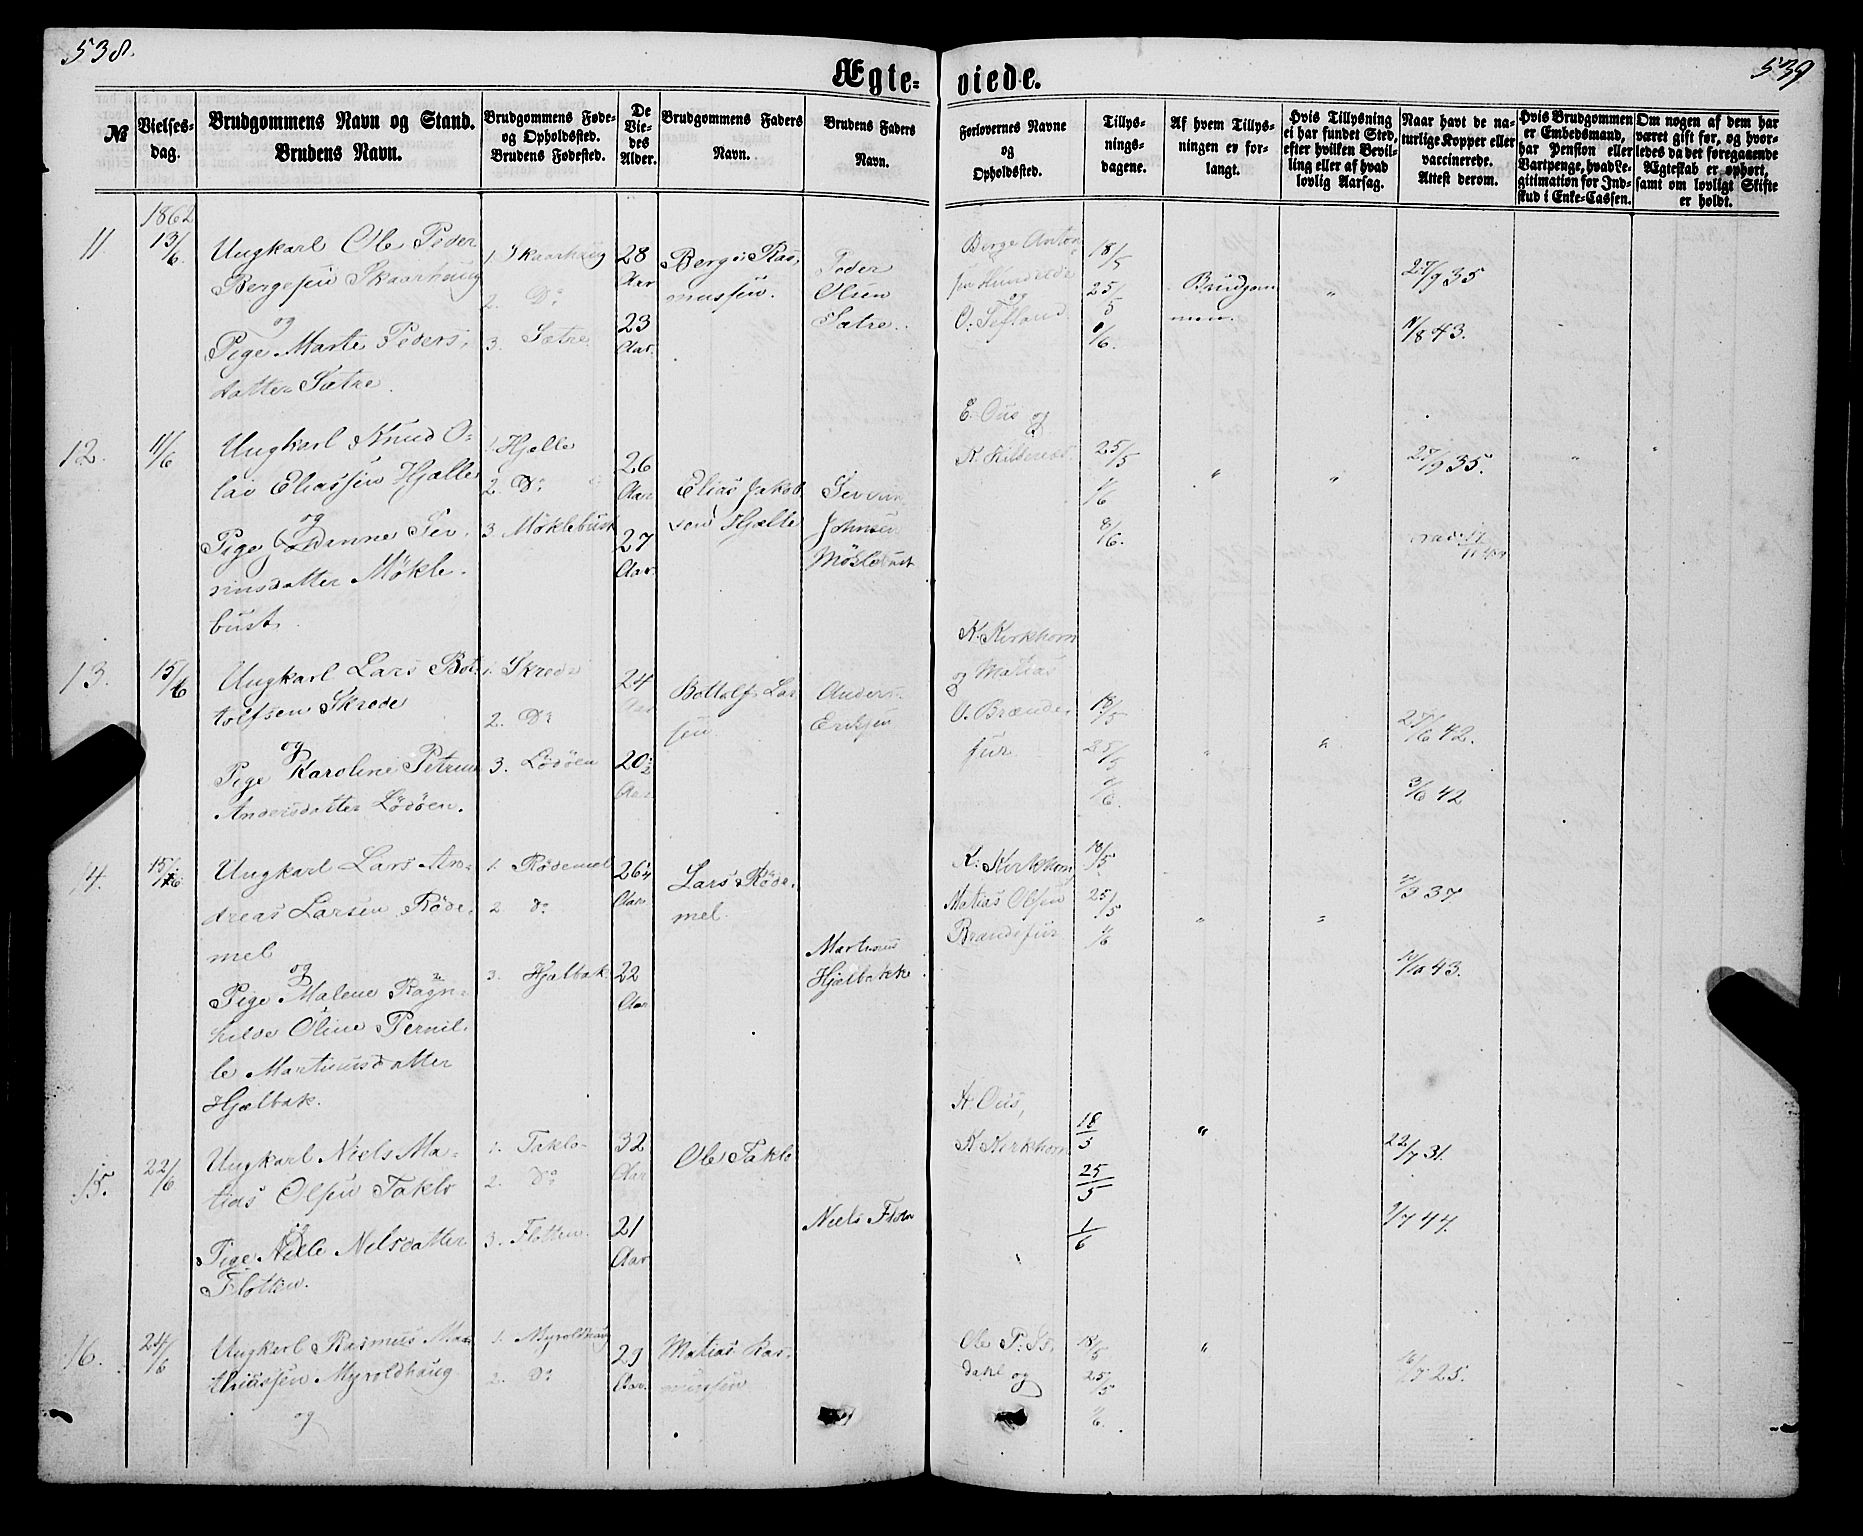 538.
539
Ægte-
viede.
№
Vielses-
dag.
Brudgommens Navn og Stand.
Brudens Navn.
Brudgommens Føde-
og Opholdssted.
Brudens Fødested.
De
Vie-
des
Alder.
Brudgommens Faders
Navn.
Brudens Faders
Navn.
Forlovernes Navne
og
Opholdssted.
Tillys-
nings-
dagene.
Af hvem Tillys-
ningen er for-
langt.
Hvis Tillysning
ei har fundet Sted,
efter hvilken Bevil-
ling eller af hvad
lovlig Aarsag.
Naar havt de na-
turlige Kopper eller
vaccinerede.
Attest derom.
Hvis Brudgommen
er Embedsmand,
har Pension eller
Vartpenge, hvad Le-
gitimation for Ind-
skud i Enke-Cassen.
Om nogen af dem har
været gift før, og hvor-
ledes da det foregaaende
Ægteskab er ophørt,
samt om lovligt Skifte
er holdt.
1862
11
13/6
Ungkarl Ole Peder
Bergesen Skaarhaug
og
Pige Marte Peders-
datter Sætre.
1. Skaarhaug
2. Do
3. Sætre
28
Aar
23
Aar.
Berge Ras-
mussen.
Peder
Olsen
Sætre.
Berge Anton
og
18/5
25/5
1/6.
Brudgom-
men.
"
27/9 35
8 43.
12.
11/6
Ungkarl Knud O-
lai Eliassen Hjelle
og
Pige Johanne Se-
rinsdatter Møkle-
bust.
1. Hjelle
2. Do
3. Møklebust
26
Aar
27
Aar.
Elias Jakob-
sen Hjelle
Johnsen
Møklebust
E. Ous og
25/5
1/6
8/6.
"
"
27/9 35.
"
"
13.
15/6
Ungkarl Lars Bot-
tolfsen Skrede
og
Pige Karoline Petrine
Andersdatter Lødøen.
1. Skrede
2. Do
3. Lødøen
24
Aar
20½
Aar
Bottolf Lar-
sen
Anders
Eriksen
K. Kirkhorn
og Matias
O. Brænde-
fur
18/5
25/5
1/6.
"
"
27/6 42.
3/6 42
14.
15/6
Ungkarl Lars An-
dreas Larsen Røde-
mel
og
Pige Malene Ragn-
hilde Oline Pernil-
le Martinusdatter
Hjelbak.
1. Rødemel
2. do
3. Hjelbak
26¼
Aar
22
Aar
Lars Røde-
mel.
Martinus
Hjelbakke
K. Kirkhorn
Matias Olsen
Brændefur
18/5.
25/5
1/6
"
"
9 37
10 43.
15.
22/6
Ungkarl Niels Ma-
tias Olsen Taklo
og
Pige Nille Nelsdatter
Flotten.
1. Taklo
2. Do
3. Flotten.
32
Aar
21
Aar
Ole Taklo
Niels Floten
A. Ous,
K. Kirkhorn
18/5
25/5
1/6
"
22/7 31.
7 44.
16.
24/6
Ungkarl Rasmus Ma-
thiassen Myroldhaug
og
1. Myroldhaug
2. Do
29
Aar.
Matias Ras-
mussen
Ole P.
dahl og
18/5
25/5
1/6.
"
7 25.